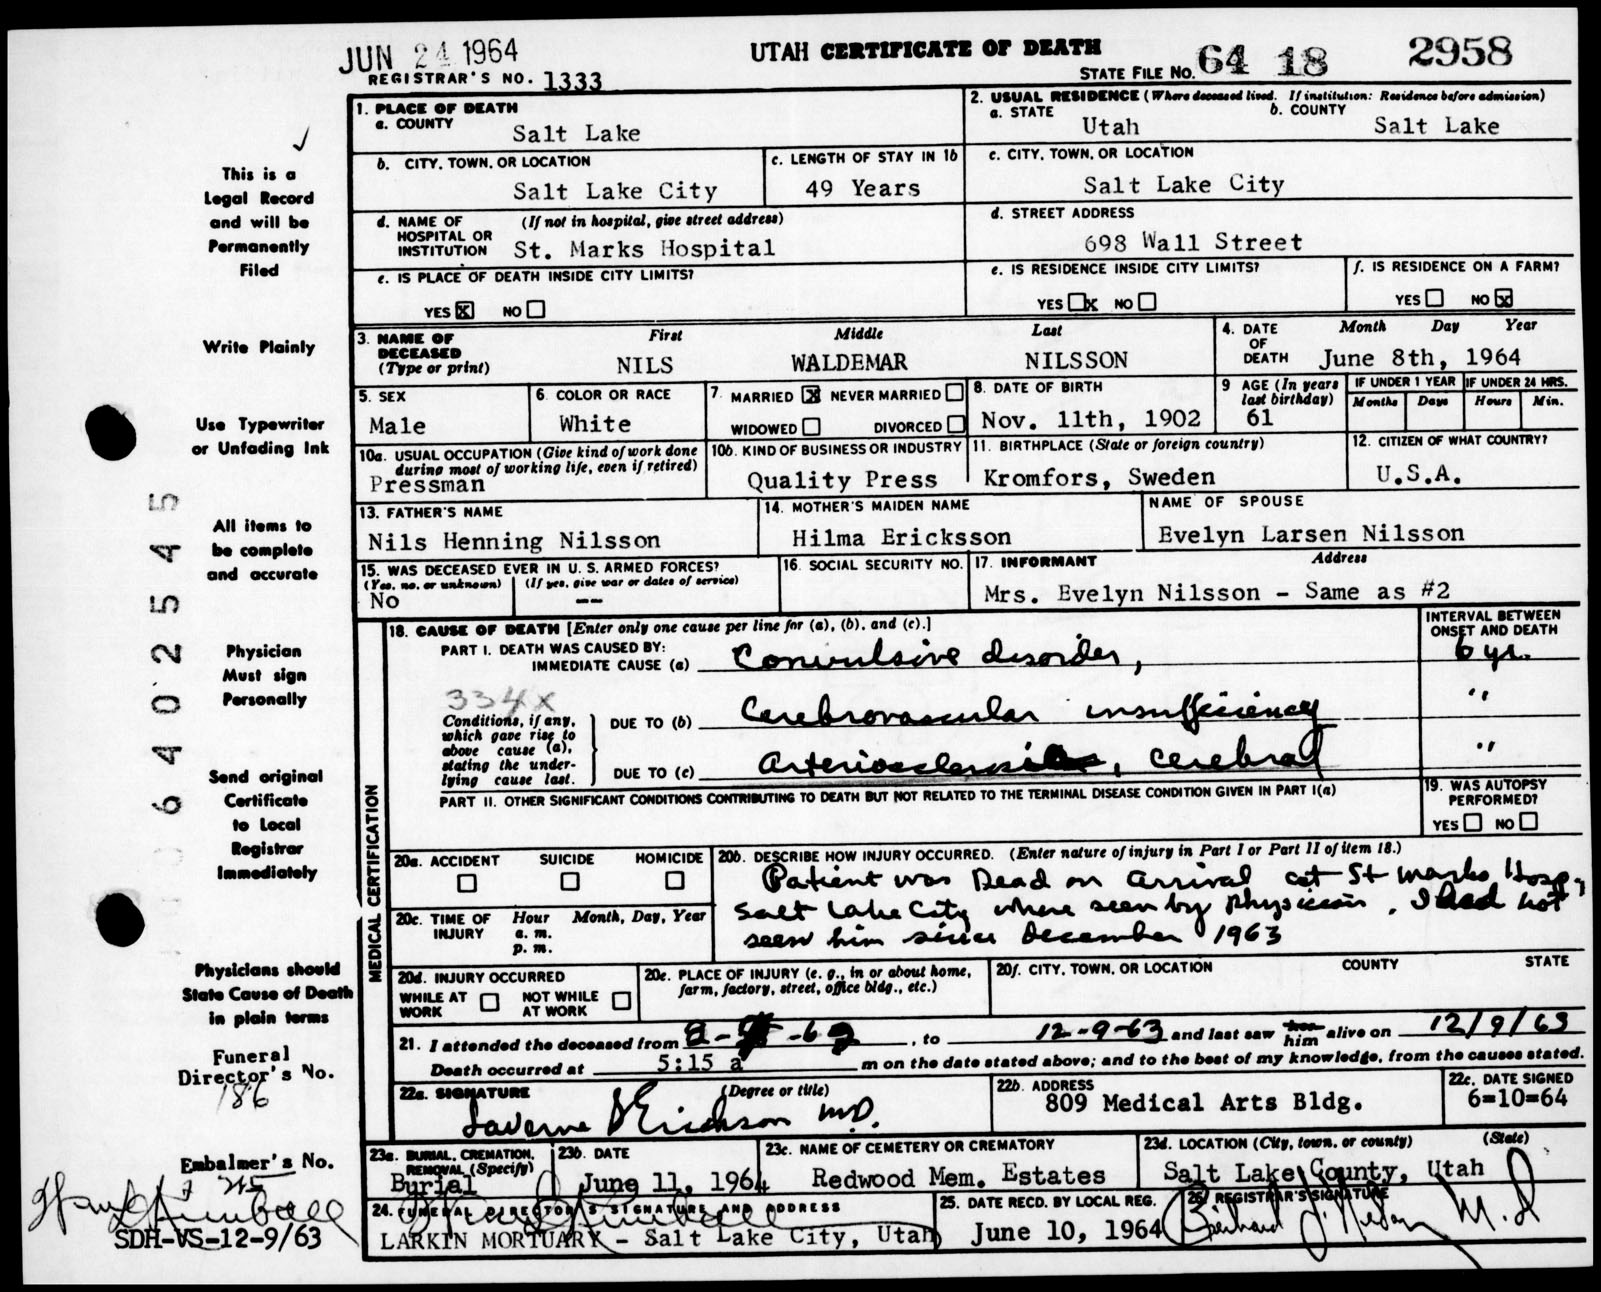 JUN 24 1964
UTAH CERTIFICATE OF DEATH
REGISTRAR'S NO. 1333
STATE FILE NO. 64 18 2958
This is a
Legal Record
and will be
Permanently
Filed
Write Plainly
Use Typewriter
or Unfading Ink
All items to
be complete
and accurate
Physician
Must sign
Personally
Send original
Certificate
to Local
Registrar
Immediately
Physicians should
State Cause of Death
in plain terms
Funeral
Director's No.
186
Embalmer's No.
SDH-VS-12-9/63
64025545
1. PLACE OF DEATH
a. COUNTY
Salt Lake
2. USUAL RESIDENCE (Where deceased lived. If institution: Residence before admission)
a. STATE b. COUNTY
Utah Salt Lake
b. CITY, TOWN, OR LOCATION
Salt Lake City
c. LENGTH OF STAY IN 1b
49 Years
c. CITY, TOWN, OR LOCATION
Salt Lake City
d. NAME OF (If not in hospital, give street address)
HOSPITAL OR
INSTITUTION St. Marks Hospital
d. STREET ADDRESS
698 Wall Street
e. IS PLACE OF DEATH INSIDE CITY LIMITS?
YES X NO
e. IS RESIDENCE INSIDE CITY LIMITS?
YES X NO
f. IS RESIDENCE ON A FARM?
YES NO X
3. NAME OF First Middle Last
DECEASED
(Type or print) NILS WALDEMAR NILSSON
4. DATE Month Day Year
OF
DEATH June 8th, 1964
5. SEX
Male
6. COLOR OR RACE
White
7. MARRIED X NEVER MARRIED
WIDOWED DIVORCED
8. DATE OF BIRTH
Nov. 11th, 1902
9 AGE (In years
last birthday)
61
IF UNDER 1 YEAR IF UNDER 24 HRS.
Months Days Hours Min.
10a. USUAL OCCUPATION (Give kind of work done
during most of working life, even if retired)
Pressman
10b. KIND OF BUSINESS OR INDUSTRY
Quality Press
11. BIRTHPLACE (State or foreign country)
Kromfors, Sweden
12. CITIZEN OF WHAT COUNTRY?
U.S.A.
13. FATHER'S NAME
Nils Henning Nilsson
14. MOTHER'S MAIDEN NAME
Hilma Ericksson
NAME OF SPOUSE
Evelyn Larsen Nilsson
15. WAS DECEASED EVER IN U. S. ARMED FORCES?
(Yes, no, or unknown) (If yes, give war or dates of service)
No --
16. SOCIAL SECURITY NO.
17. INFORMANT Address
Mrs. Evelyn Nilsson - Same as #2
MEDICAL CERTIFICATION
18. CAUSE OF DEATH [Enter only one cause per line for (a), (b), and (c).]
INTERVAL BETWEEN
ONSET AND DEATH
PART I. DEATH WAS CAUSED BY:
IMMEDIATE CAUSE (a) Convulsive disorder, 6 yr.
334X
Conditions, if any,
which gave rise to
above cause (a),
stating the under-
lying cause last.
DUE TO (b) Cerebrovascular insufficiency "
DUE TO (c) Arteriosclerosis, cerebral "
PART II. OTHER SIGNIFICANT CONDITIONS CONTRIBUTING TO DEATH BUT NOT RELATED TO THE TERMINAL DISEASE CONDITION GIVEN IN PART I(a)
19. WAS AUTOPSY
PERFORMED?
YES NO
20a. ACCIDENT SUICIDE HOMICIDE
20b. DESCRIBE HOW INJURY OCCURRED. (Enter nature of injury in Part I or Part II of item 18.)
Patient was Dead on arrival at St Marks Hosp,
Salt Lake City where seen by physician. I had not
seen him since December 1963
20c. TIME OF Hour Month, Day, Year
INJURY a. m.
p. m.
20d. INJURY OCCURRED
WHILE AT NOT WHILE
WORK AT WORK
20e. PLACE OF INJURY (e. g., in or about home,
farm, factory, street, office bldg., etc.)
20f. CITY, TOWN, OR LOCATION COUNTY STATE
21. I attended the deceased from , to 12-9-63 and last saw her him alive on 12/9/63
Death occurred at 5:15 a m on the date stated above; and to the best of my knowledge, from the causes stated.
22a. SIGNATURE (Degree or title)
LaVerne Erickson M.D.
22b. ADDRESS
809 Medical Arts Bldg.
22c. DATE SIGNED
6-10-64
23a. BURIAL, CREMATION,
REMOVAL (Specify)
Burial
23b. DATE
June 11, 1964
23c. NAME OF CEMETERY OR CREMATORY
Redwood Mem. Estates
23d. LOCATION (City, town, or county) (State)
Salt Lake County, Utah
24. FUNERAL DIRECTOR'S SIGNATURE AND ADDRESS
LARKIN MORTUARY - Salt Lake City, Utah
25. DATE RECD. BY LOCAL REG.
June 10, 1964
26. REGISTRAR'S SIGNATURE
M.D